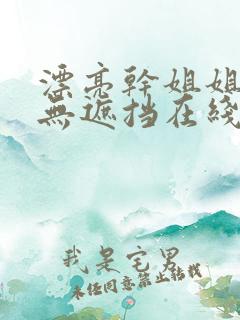 漂亮幹姐姐
無遮挡在綫
我是宅男
未经同意禁止转载